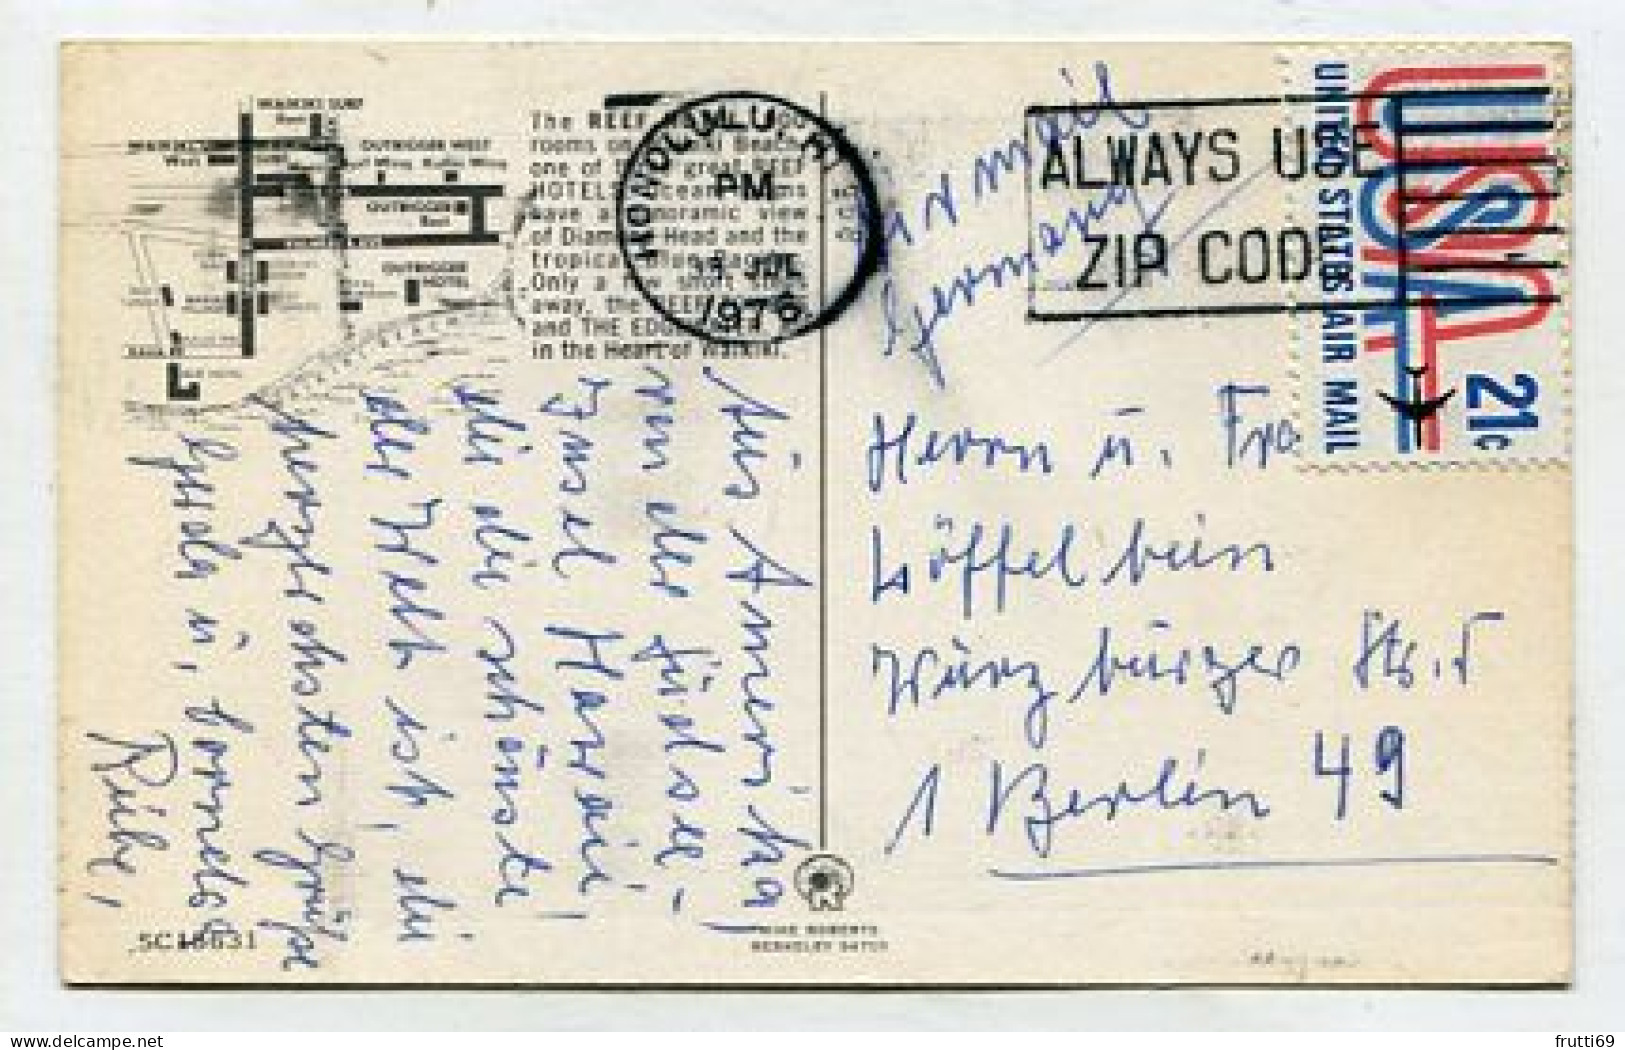 WAIKIKI SURF
East
WAIKIKI SURF
West
OUTRIGGER WEST
Wing Kuhio Wing
OUTRIGGER
East
OUTRIGGER
HOTEL
The REEF
rooms on Beach
one of great REEF
HOTELS. Ocean
have a panoramic view
of Diamond Head and the
tropical Blue
Only a few short
away, the REEF
and THE EDGEWATER
in the Heart of Waikiki.
HONOLULU, HI
PM
JUL
1976
ALWAYS USE
ZIP CODE
UNITED STATES AIR MAIL
USA
21c
Air mail
Germany
Herrn u. Fra
Löffelbein
Würzburger Str. 5
1 Berlin 49
Aus Amerika,
von der Südsee-
Insel Hawaii,
die die schönste
der Welt ist, die
herzlichsten Grüße
Gisela u.
MIKE ROBERTS
BERKELEY 94710
frutti69